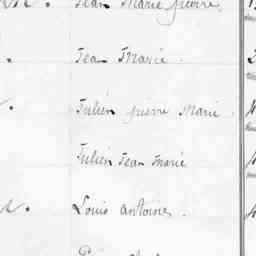 Jean Marie pierre
Jean Marie
Julien pierre Marie
Julien Jean marie
Louis antoine.